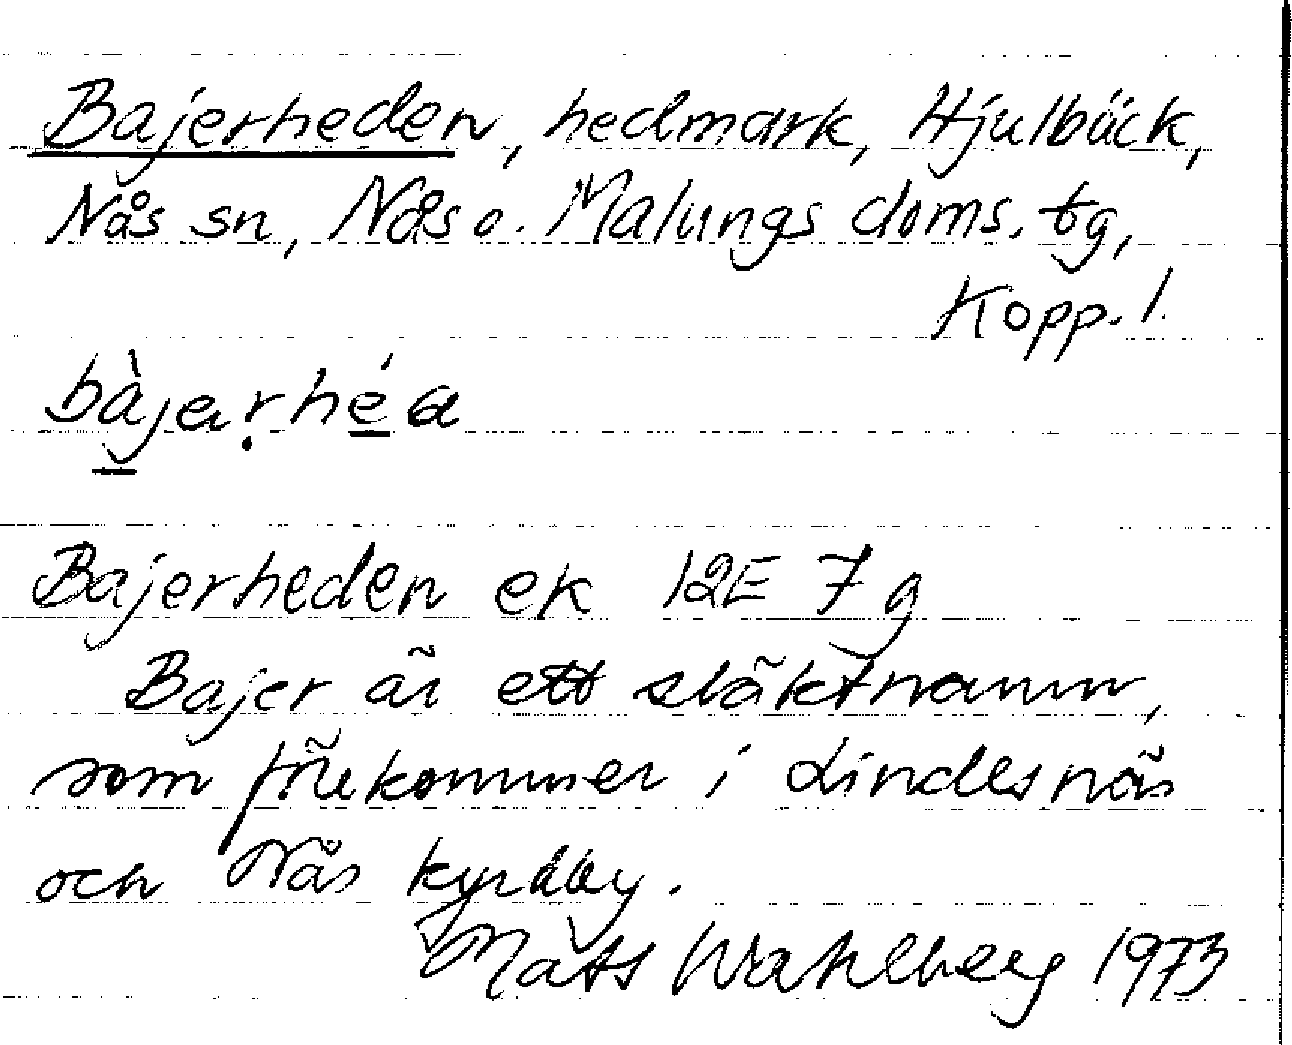 Bajerheden, hedmark, Hjulbäck,
Nås sn, Nås o. Malungs doms. tg,
Kopp. l.
bàjerhéa
Bajerheden ek 12E 7g
Bajer är ett släktnamn,
som förekommer i Lindesnäs
och Nås kyrkby.
Mats Wahlberg 1973